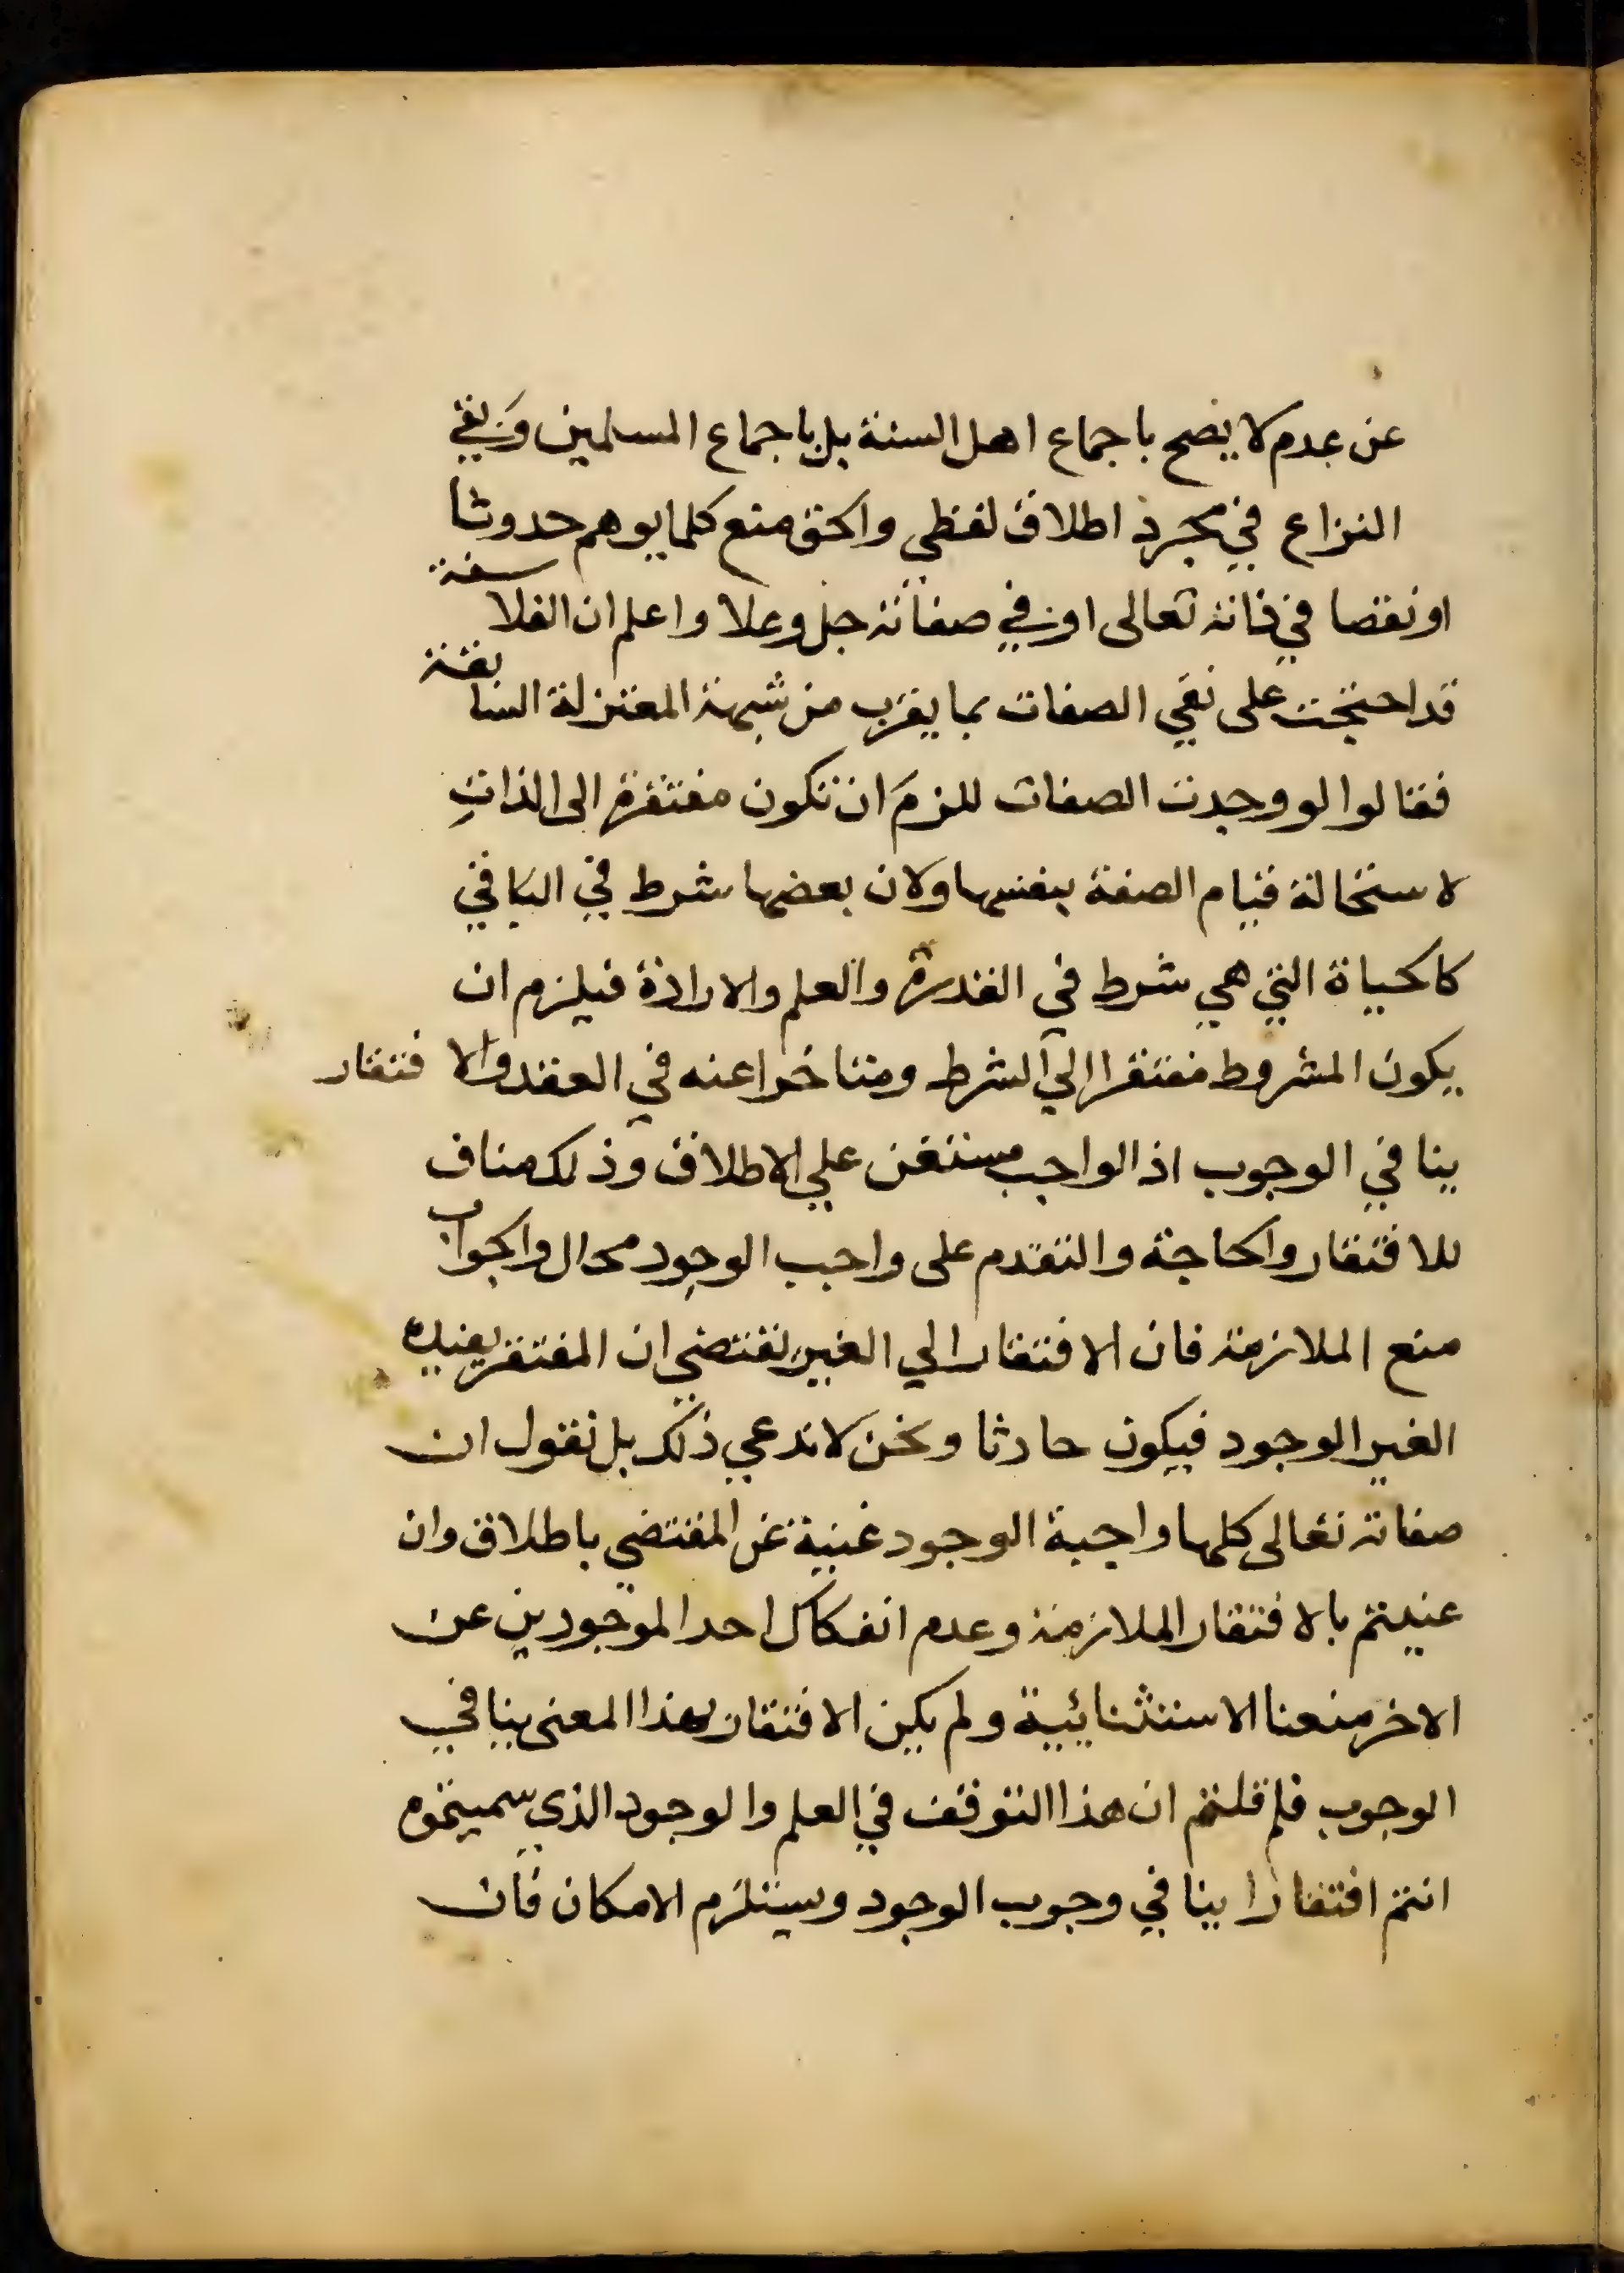 عن عدم لا يصح باجماع اهل السنة بل باجماع المسلمين وبقي
النزاع في مجرد اطلاق لفظي والحق منع كلما يوهم حدوثا
او نقصا في ذاته تعالى او في صفاته جل وعلا واعلم ان الفلاسفة
قد احتجت على نفي الصفات بما يقرب من شبهة المعتزلة السابقة
فقالوا لو وجدت الصفات للزم ان تكون مفتقرة الى الذات
لاستحالة قيام الصفة بنفسها ولان بعضها شرط في الباقي
كالحياة التي هي شرط في القدرة والعلم والارادة فيلزم ان
يكون المشروط مفتقرا الي الشرط ومتاخرا عنه في العقد والافتقار
ينافي الوجوب اذ الواجب مستغن علي الاطلاق وذلك مناف
للافتقار والحاجة والتقدم على واجب الوجود محال والجواب
منع الملازمة فان الافتقار الي الغير يقتضي ان المفتقر يفيده
الغير الوجود فيكون حادثا ونحن لا ندعي ذلك بل نقول ان
صفاته تعالى كلها واجبة الوجود غنية عن المقتضي باطلاق وان
عنيتم بالافتقار الملازمة وعدم انفكاك احد الموجودين عن
الاخر منعنا الاستثنائية ولم يكن الافتقار بهذا المعنى ينافي
الوجوب فلم قلتم ان هذا التوقف في العلم والوجود الذي سميتموه
انتم افتقارا ينافي وجوب الوجود ويستلزم الامكان فان